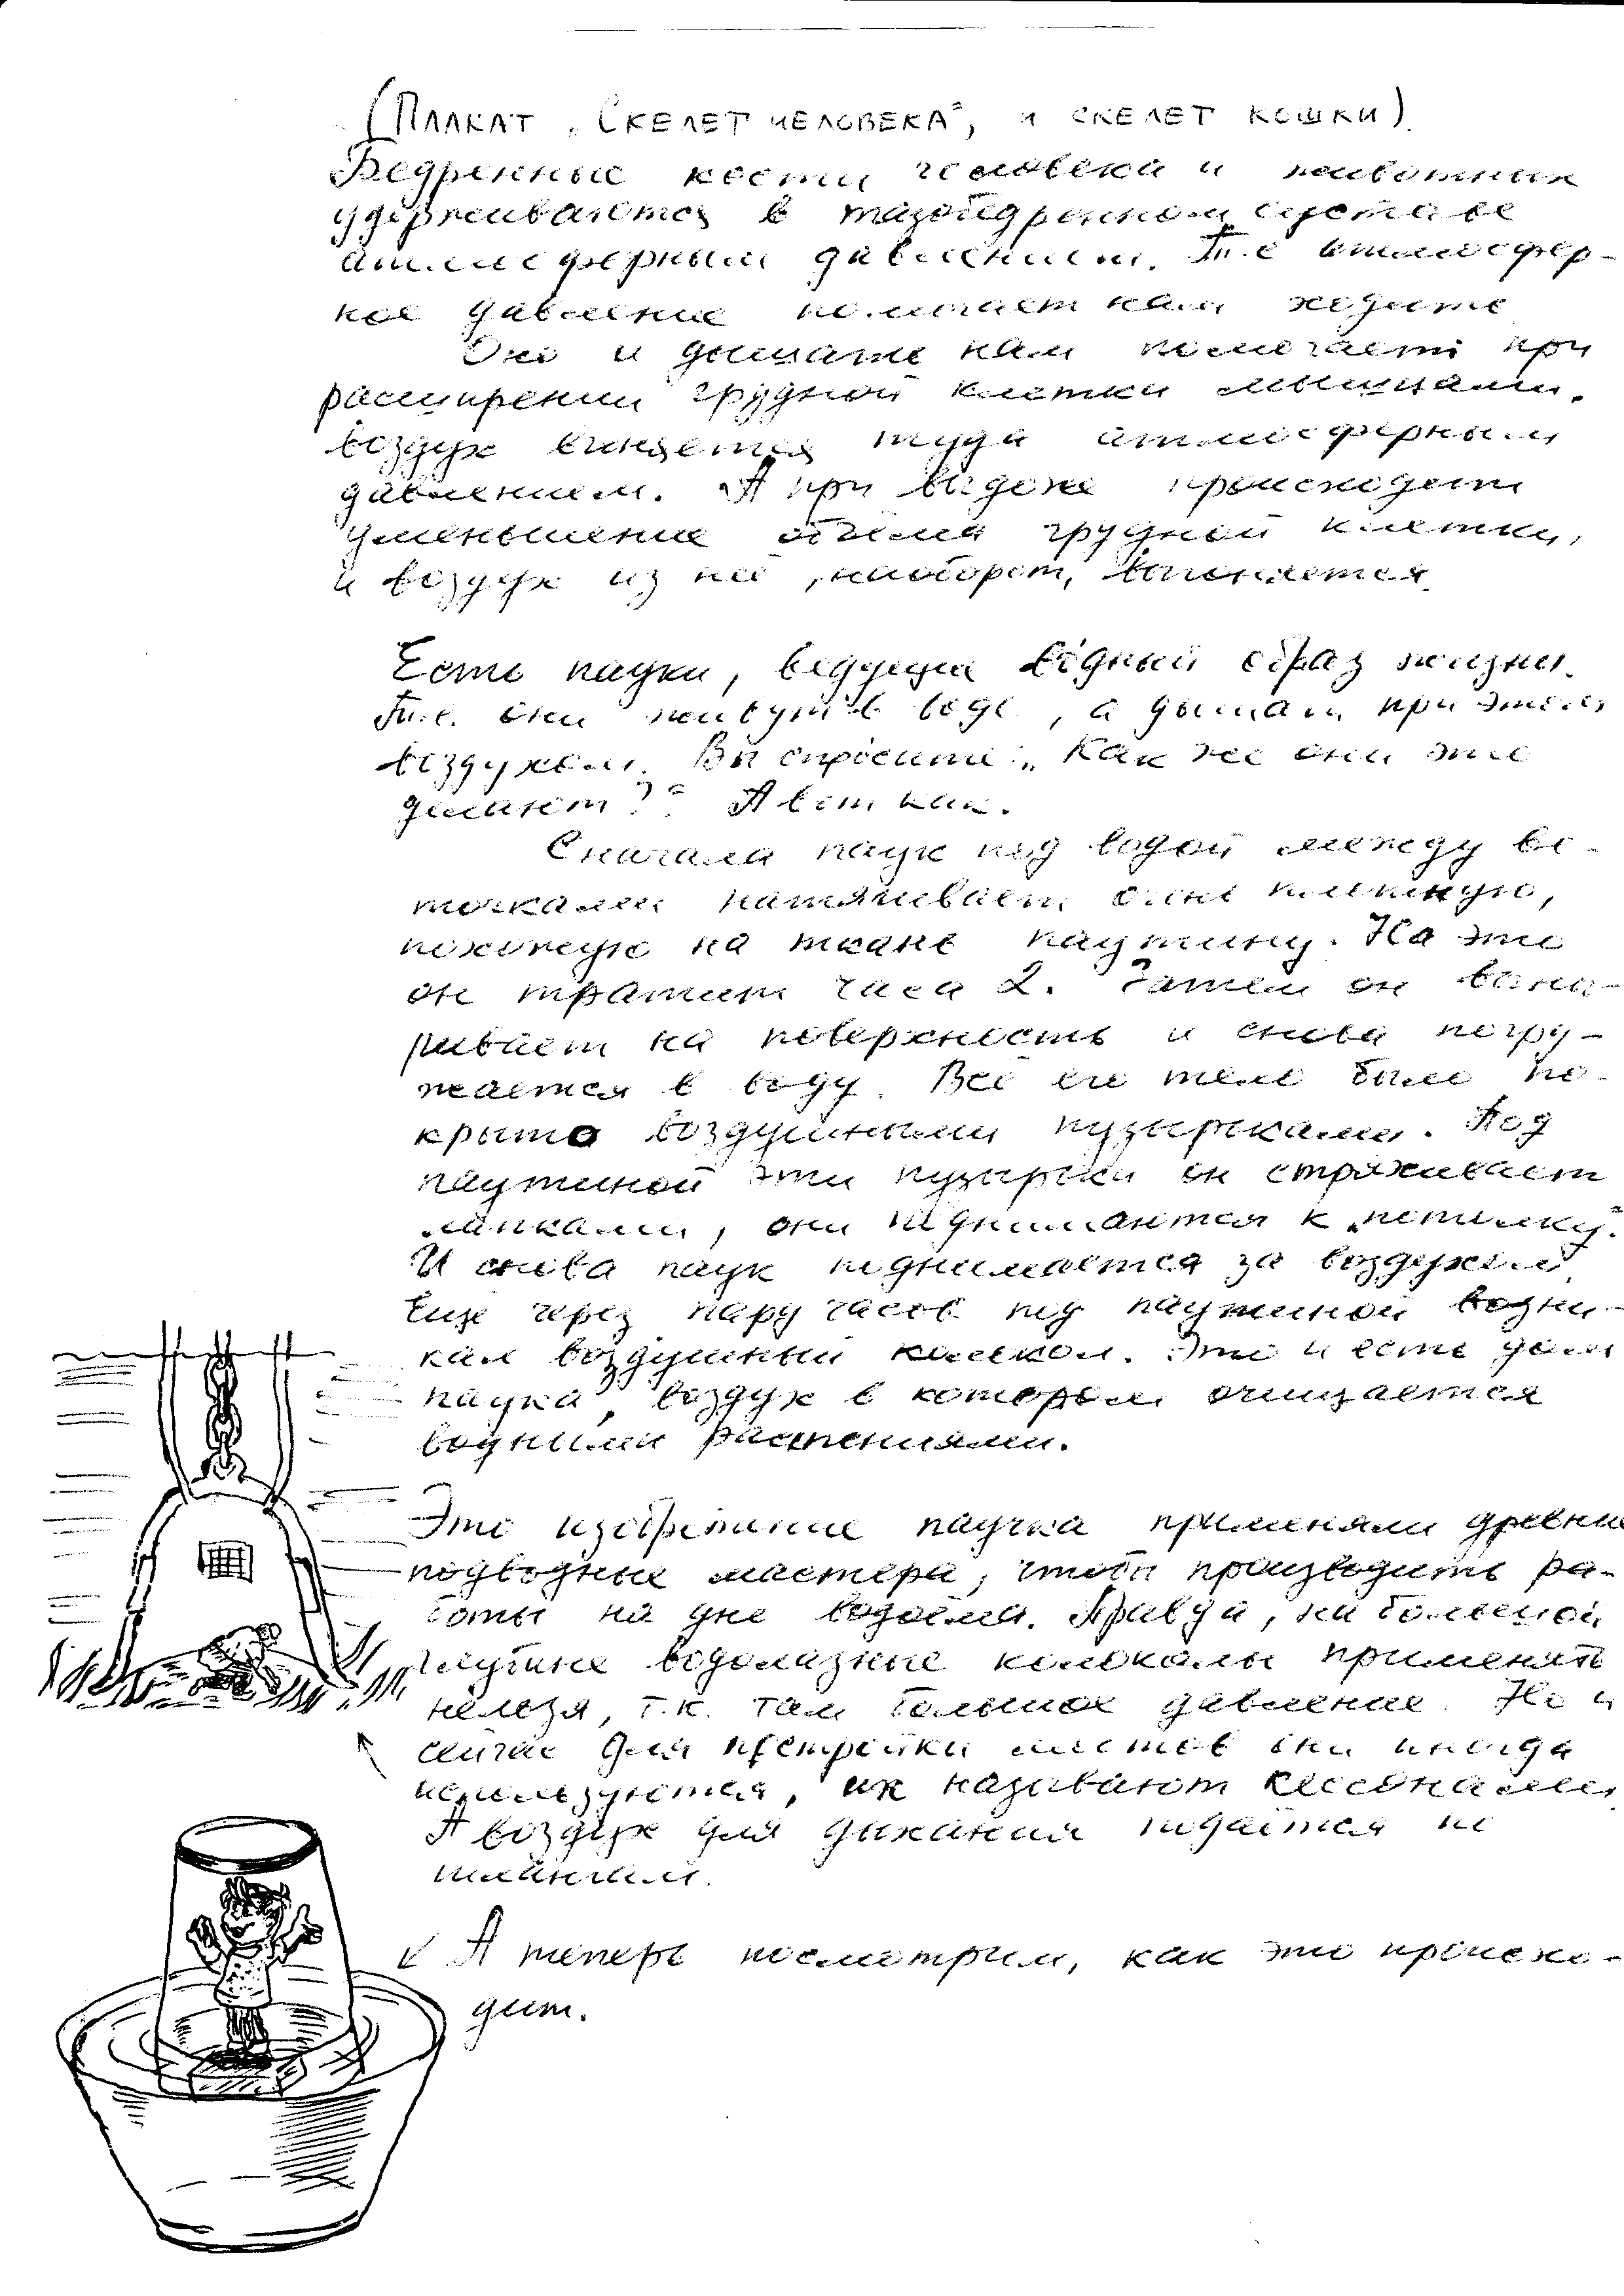 (Плакат „Скелет человека", и скелет кошки).
Бедренные кости человека и животных
удерживаются в тазобедренном суставе
атмосферным давлением. Т.е атмосфер-
ное давление помогает нам ходить
Оно и дышать нам помогает: при
расширении грудной клетки мышцами,
воздух вгоняется туда атмосферным
давлением. А при выдохе происходит
уменьшение объёма грудной клетки,
и воздух из неё, наоборот, выгоняется.
Есть пауки, ведущие водный образ жизни.
Т.е. они живут в воде, а дышат при этом
воздухом. Вы спросите: „Как же они это
делают?" А вот как.
Сначала паук под водой между ве-
точками натягивает очень плотную,
похожую на ткань паутину. На это
он тратит часа 2. Затем он выны-
ривает на поверхность и снова погру-
жается в воду. Всё его тело было по-
крыто воздушными пузырьками. Под
паутиной эти пузырьки он стряхивает
лапками, они поднимаются к „потолку".
И снова паук поднимается за воздухом.
Ещё через пару часов под паутиной возни-
кал воздушный колокол. Это и есть дом
паука, воздух в котором очищается
водными растениями.
Это изобретение паучка применяли древние
подводные мастера, чтобы производить ра-
боты на дне водоёма. Правда, на большой
глубине водолазные колоколы применять
нельзя, т.к. там большое давление. Но и
сейчас для постройки мостов они иногда
используются, их называют кессонами.
А воздух для дыхания подаётся по
шлангам.
А теперь посмотрим, как это происхо-
дит.